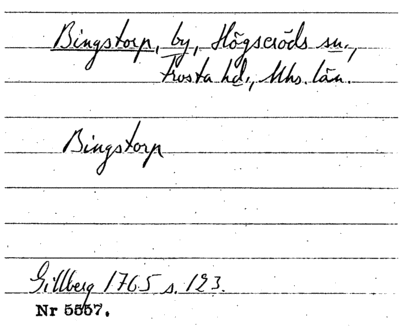 Bingstorp, by, Högseröds sn.,
Frosta hd., Mhs. län.
Bingstorp
Gillberg 1765 s. 123.
Nr 5557.